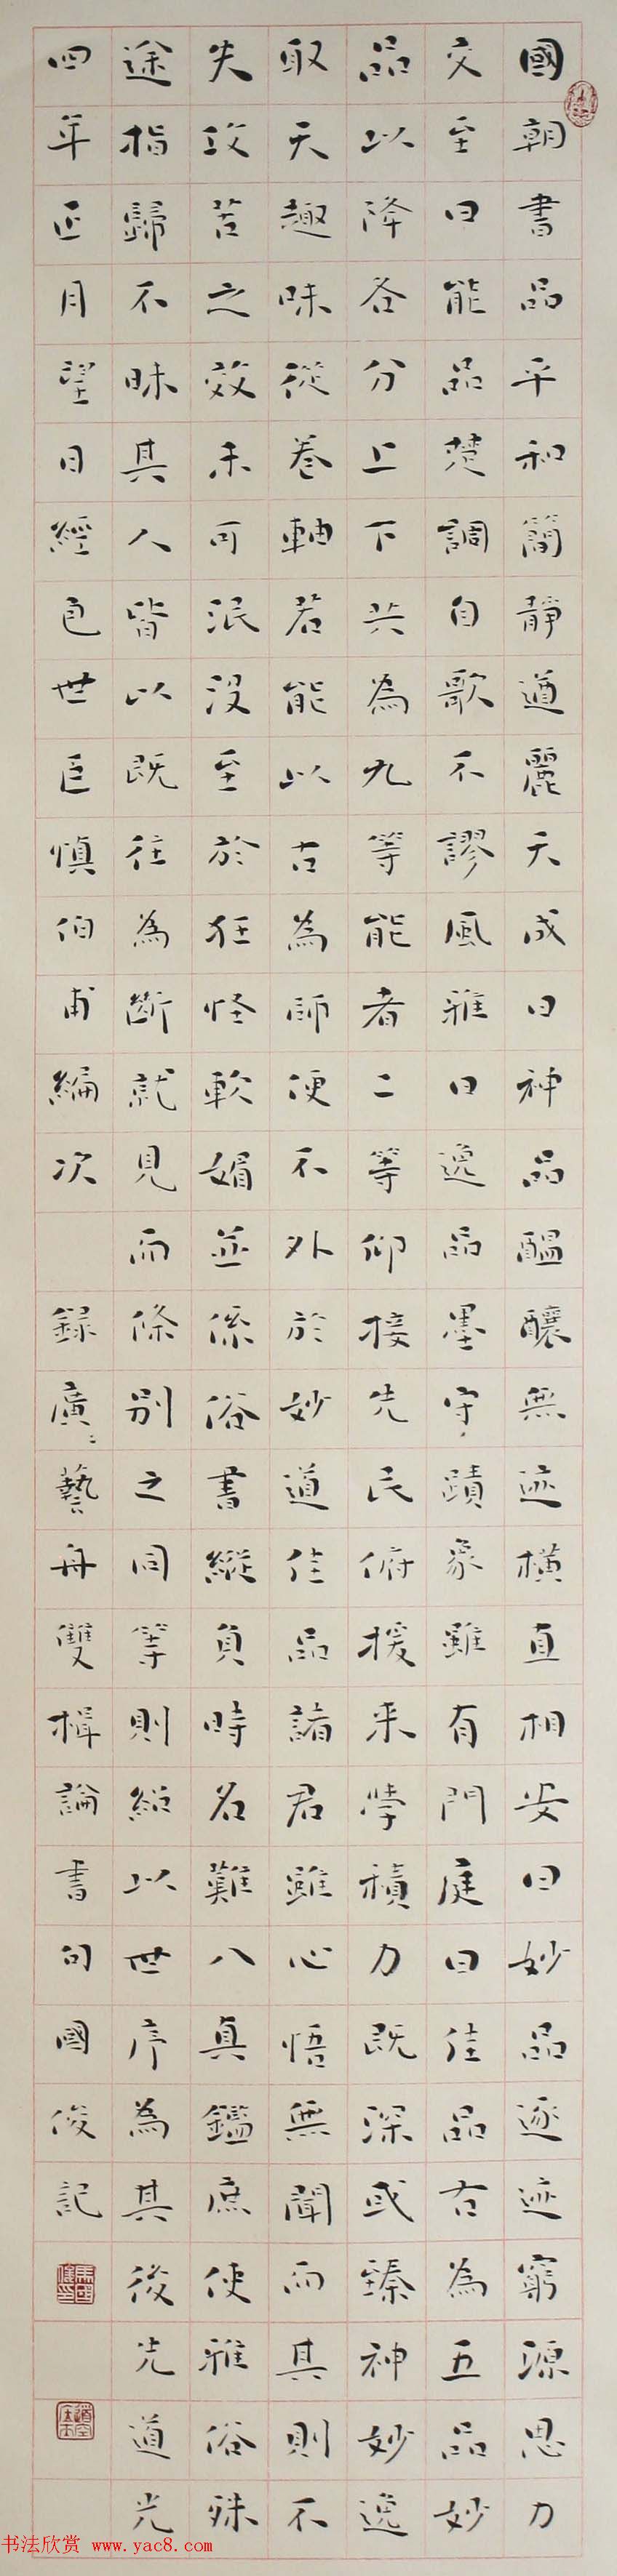 國朝書品平和簡靜遒麗天成曰神品醞釀無迹橫直相安曰妙品逐迹窮源思力
交至曰能品楚調自歌不謬風雅曰逸品墨守蹟象雖有門庭曰佳品右為五品妙
品以降各分上下共為九等能者二等仰接先民俯援来學積力既深或臻神妙逸
取天趣味從卷軸若能以古為師便不外於妙道佳品諸君雖心悟無聞而其則不
失攻苦之效未可泯没至於狂怪軟媚並係俗書縱負時名難入真鑑庶使雅俗殊
途指歸不昧其人皆以既往為斷就見而條別之同等則紹以世序為其後先道光
四年正月望日經邑世臣慎伯甫編次 録廣藝舟雙楫論書句國俊記
书法欣赏 www.yac8.com